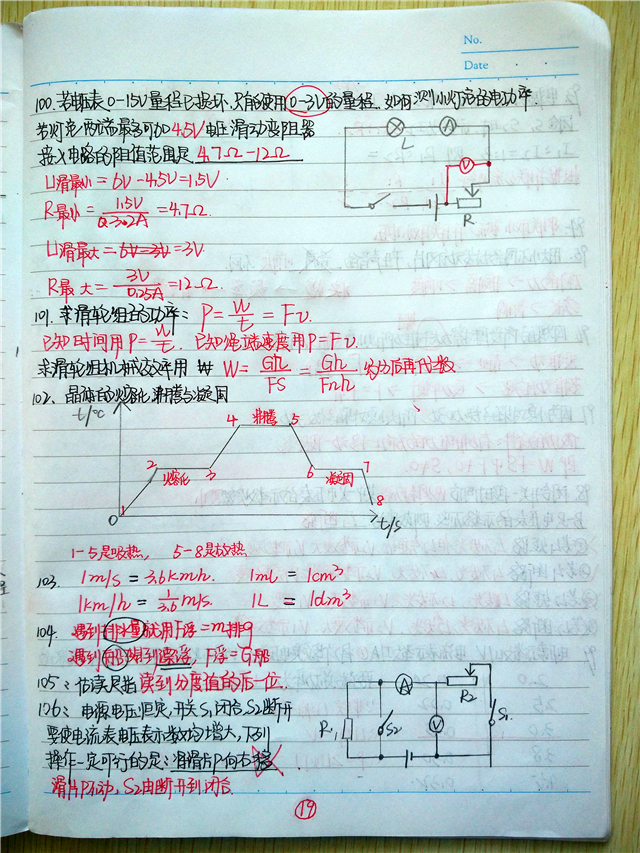 No.
Date
100. 若电压表0-15V量程已损坏.只能使用0-3V的量程.如何测小灯泡的电功率.
若灯泡两端最多可加4.5V电压滑动变阻器
接入电路的阻值范围是 4.7Ω-12Ω
U滑最小=6V-4.5V=1.5V
R最小=1.5V/0.32A=4.7Ω
U滑最大=6V-3V=3V
R最大=3V/0.25A=12Ω.
L
A
V
R
101. 求滑轮组的功率: P=W/t=Fv.
已知时间用P=W/t. 已知绳端速度用P=Fv.
求滑轮组机械效率用 W=Gh/FS=Gh/Fnh 约分后再代数
102、晶体的熔化,沸腾与凝固
t/℃
4 沸腾 5
2 熔化 3 6 凝固 7
1 8
0 t/s
1-5是吸热, 5-8是放热
103. 1m/s=3.6km/h. 1mL=1cm³
1km/h=1/3.6 m/s. 1L=1dm³
104. 遇到排水量就用F浮=m排g
遇到船想到漂浮,F浮=G船
105: 估读是指读到分度值的后一位.
106: 电源电压恒定,开关S1闭合,S2断开
要使电流表电压表示数均增大,下列
操作一定可行的是:将滑片P向右移
滑片P不动,S2由断开到闭合.
A
R2
R1
S2
V
S1
19